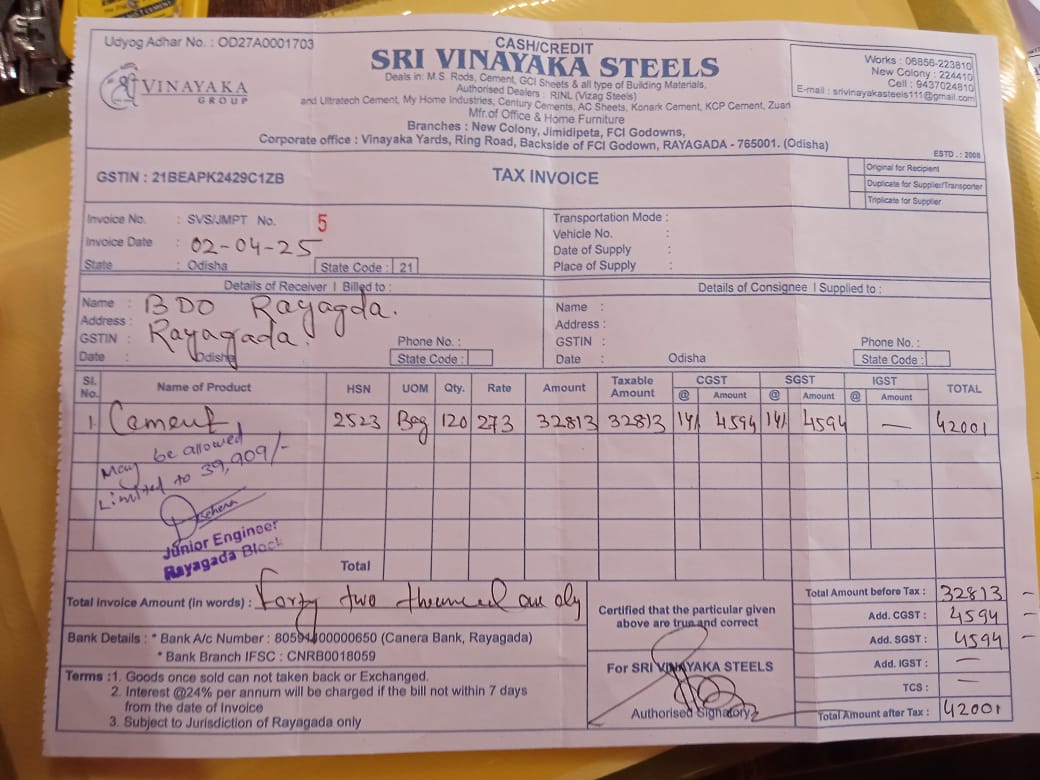 Udyog Adhar No. : OD27A0001703
CASH/CREDIT
SRI VINAYAKA STEELS
VINAYAKA
GROUP
Deals in: M.S. Rods, Cement, GCI Sheets & all type of Building Materials,
Authorised Dealers : RINL (Vizag Steels)
and Ultratech Cement, My Home Industries, Century Cements, AC Sheets, Konark Cement, KCP Cement, Zuari
Mfr.of Office & Home Furniture
Branches : New Colony, Jimidipeta, FCI Godowns,
Corporate office : Vinayaka Yards, Ring Road, Backside of FCI Godown, RAYAGADA - 765001. (Odisha)
Works : 06856-223810
New Colony : 224410
Cell : 9437024810
E-mail : srivinayakasteels111@gmail.com
ESTD .: 2008
GSTIN : 21BEAPK2429C1ZB
TAX INVOICE
Original for Recipient
Duplicate for Supplier/Transporter
Triplicate for Supplier
Invoice No. : SVS/JMPT No. 5
Invoice Date : 02-04-25
State : Odisha State Code : 21
Transportation Mode :
Vehicle No. :
Date of Supply :
Place of Supply :
Details of Receiver | Billed to :
Name : BDO Rayagda.
Address : Rayagada.
GSTIN : Phone No. :
Date : Odisha State Code :
Details of Consignee | Supplied to :
Name :
Address :
GSTIN : Phone No. :
Date : Odisha State Code :
Sl. No. Name of Product HSN UOM Qty. Rate Amount Taxable Amount CGST @ Amount SGST @ Amount IGST @ Amount TOTAL
1. Cement 2523 Bag 120 273 32813 32813 14% 4594 14% 4594 — 42001
May be allowed
Limited to 39,909/-
Junior Engineer
Rayagada Block
Total
Total Invoice Amount (in words) : Forty two thousand one oly
Bank Details : * Bank A/c Number : 80591400000650 (Canera Bank, Rayagada)
* Bank Branch IFSC : CNRB0018059
Terms :1. Goods once sold can not taken back or Exchanged.
2. Interest @24% per annum will be charged if the bill not within 7 days
from the date of Invoice
3. Subject to Jurisdiction of Rayagada only
Certified that the particular given
above are true and correct
For SRI VINAYAKA STEELS
Authorised Signatory
Total Amount before Tax : 32813 -
Add. CGST : 4594 -
Add. SGST : 4594 -
Add. IGST : —
TCS : —
Total Amount after Tax : 42001